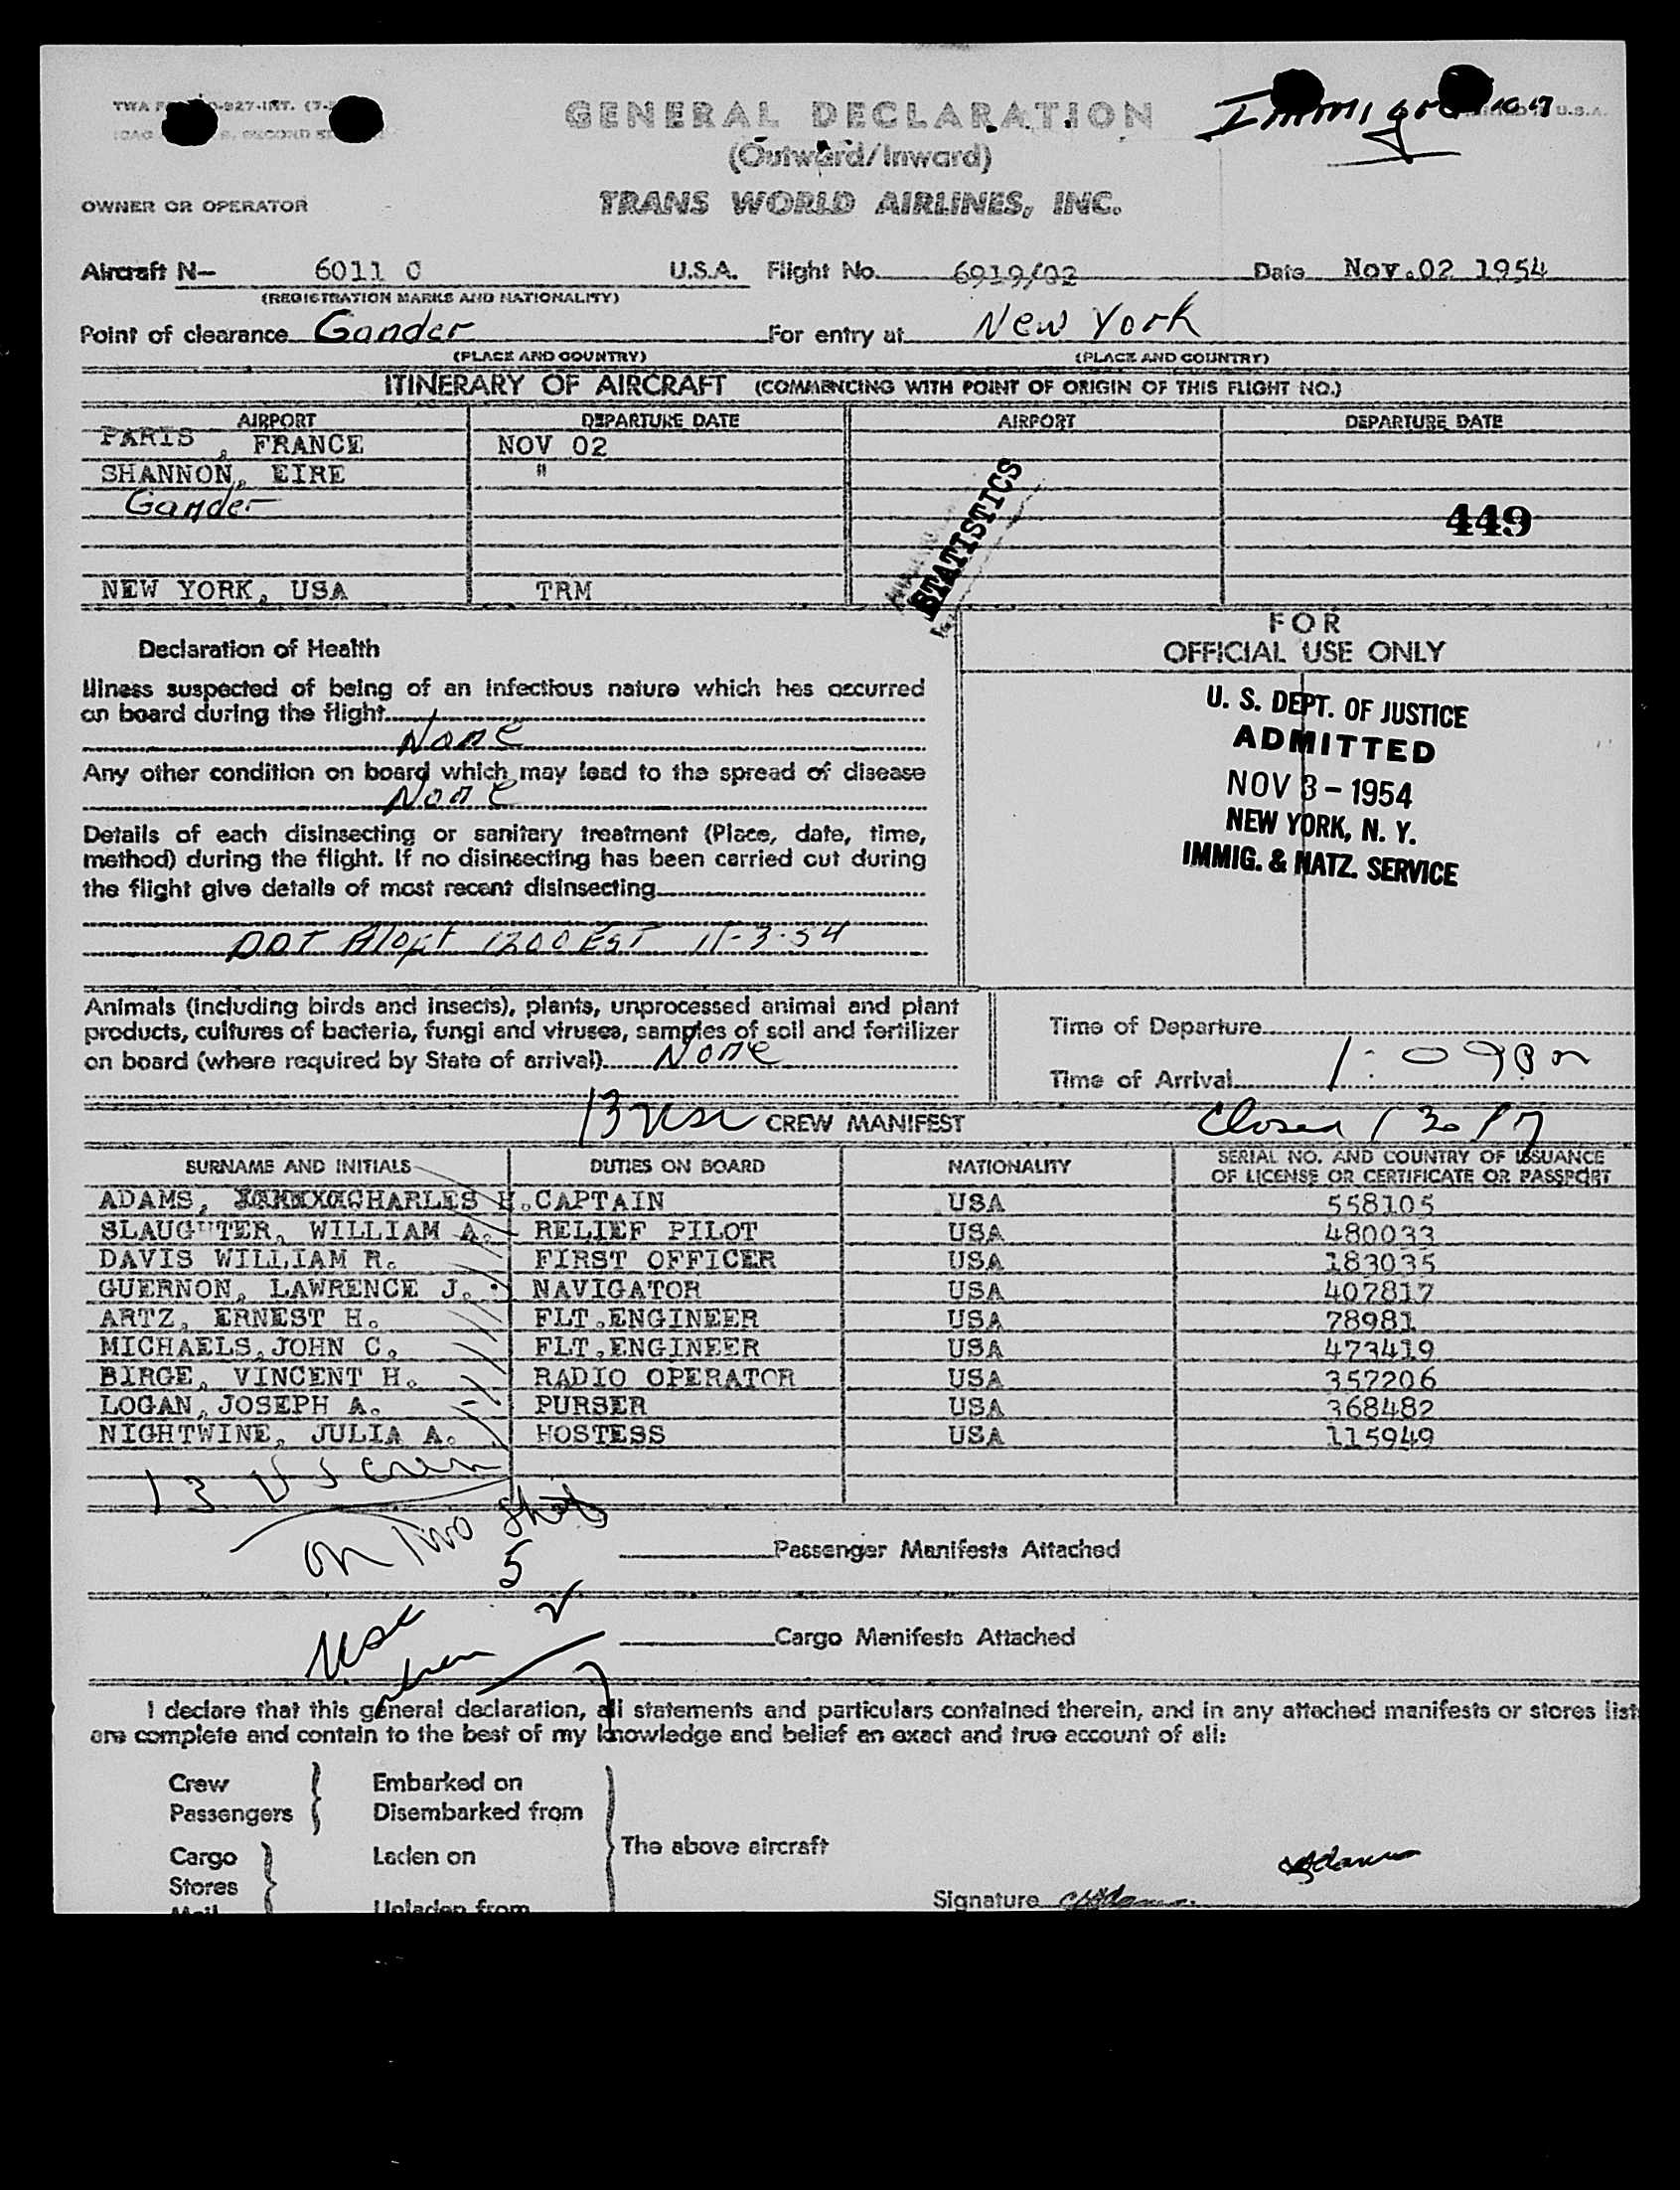 GENERAL DECLARATION
(Outward/Inward)
TRANS WORLD AIRLINES, INC.
U.S.A.
OWNER OR OPERATOR
Aircraft N— 6011 C U.S.A. Flight No. 6919/02 Date Nov.02 1954
(REGISTRATION MARKS AND NATIONALITY)
Point of clearance Gander For entry at New York
(PLACE AND COUNTRY) (PLACE AND COUNTRY)
ITINERARY OF AIRCRAFT (COMMENCING WITH POINT OF ORIGIN OF THIS FLIGHT NO.)
AIRPORT DEPARTURE DATE AIRPORT DEPARTURE DATE
PARIS, FRANCE NOV 02
SHANNON, EIRE "
Gander
STATISTICS
449
NEW YORK, USA TRM
FOR
OFFICIAL USE ONLY
U. S. DEPT. OF JUSTICE
ADMITTED
NOV 3 - 1954
NEW YORK, N. Y.
IMMIG. & NATZ. SERVICE
Declaration of Health
Illness suspected of being of an infectious nature which has occurred
on board during the flight
None
Any other condition on board which may lead to the spread of disease
None
Details of each disinsecting or sanitary treatment (Place, date, time,
method) during the flight. If no disinsecting has been carried out during
the flight give details of most recent disinsecting
DDT 1200 EST 11-3-54
Animals (including birds and insects), plants, unprocessed animal and plant
products, cultures of bacteria, fungi and viruses, samples of soil and fertilizer
on board (where required by State of arrival) None
Time of Departure
Time of Arrival 1:09
CREW MANIFEST
SURNAME AND INITIALS DUTIES ON BOARD NATIONALITY SERIAL NO. AND COUNTRY OF ISSUANCE
OF LICENSE OR CERTIFICATE OR PASSPORT
ADAMS, CHARLES H. CAPTAIN USA 558105
SLAUGHTER, WILLIAM A. RELIEF PILOT USA 480033
DAVIS WILLIAM R. FIRST OFFICER USA 183035
GUERNON, LAWRENCE J. NAVIGATOR USA 407817
ARTZ, ERNEST H. FLT.ENGINEER USA 78981
MICHAELS, JOHN C. FLT.ENGINEER USA 473419
BIRGE, VINCENT H. RADIO OPERATOR USA 357206
LOGAN, JOSEPH A. PURSER USA 368482
NIGHTWINE, JULIA A. HOSTESS USA 115949
13 US crew
on two
5
Passenger Manifests Attached
Cargo Manifests Attached
I declare that this general declaration, all statements and particulars contained therein, and in any attached manifests or stores list
are complete and contain to the best of my knowledge and belief an exact and true account of all:
Crew
Passengers
Embarked on
Disembarked from
Cargo
Stores
Mail
Laden on
Unladen from
The above aircraft
Signature